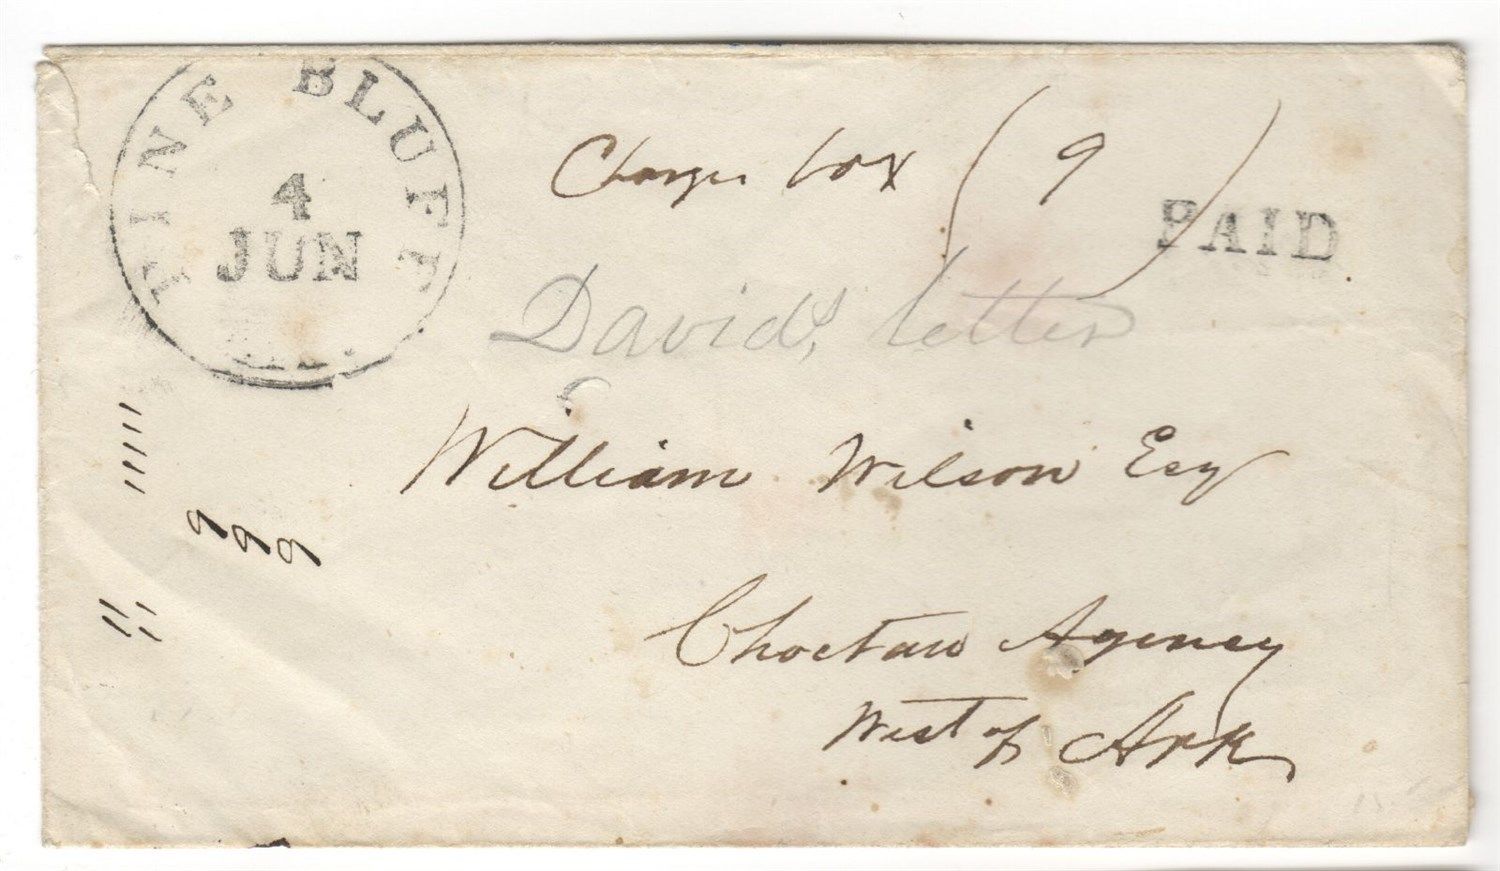 PINE BLUFF
4
JUN
Charge box (9)
PAID
Davids letter
William Wilson Esq
999
Choctaw Agency
West of Ark